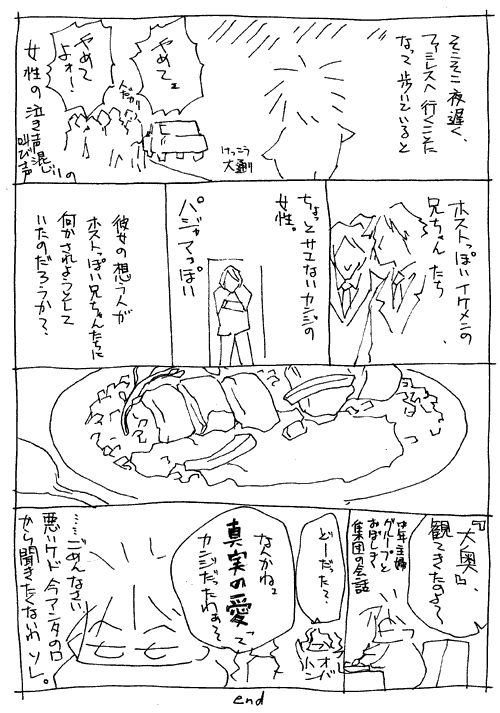 そこそこ夜遅く、
ファミレスへ行くことに
なって歩いていると
けっこう
大通り
やめてェ
やめて
よォ!
人だかり
女性の泣き声混じりの
叫び声
ホストっぽいイケメンの
兄ちゃんたち
ちょっとサエないカンジの
女性。
パジャマっぽい
彼女の想う人が
ホストっぽい兄ちゃんたちに
何かされようとして
いたのだろうか?
『大奥』、
観てきたのよ〜
中年主婦
グループと
おぼしき
集団の会話
どーだった?
オバ
なんかねェ
真実の愛って
カンジだったわぁ〜
……ごめんなさい
悪いケド今アンタの口
から聞きたくないわソレ。
end